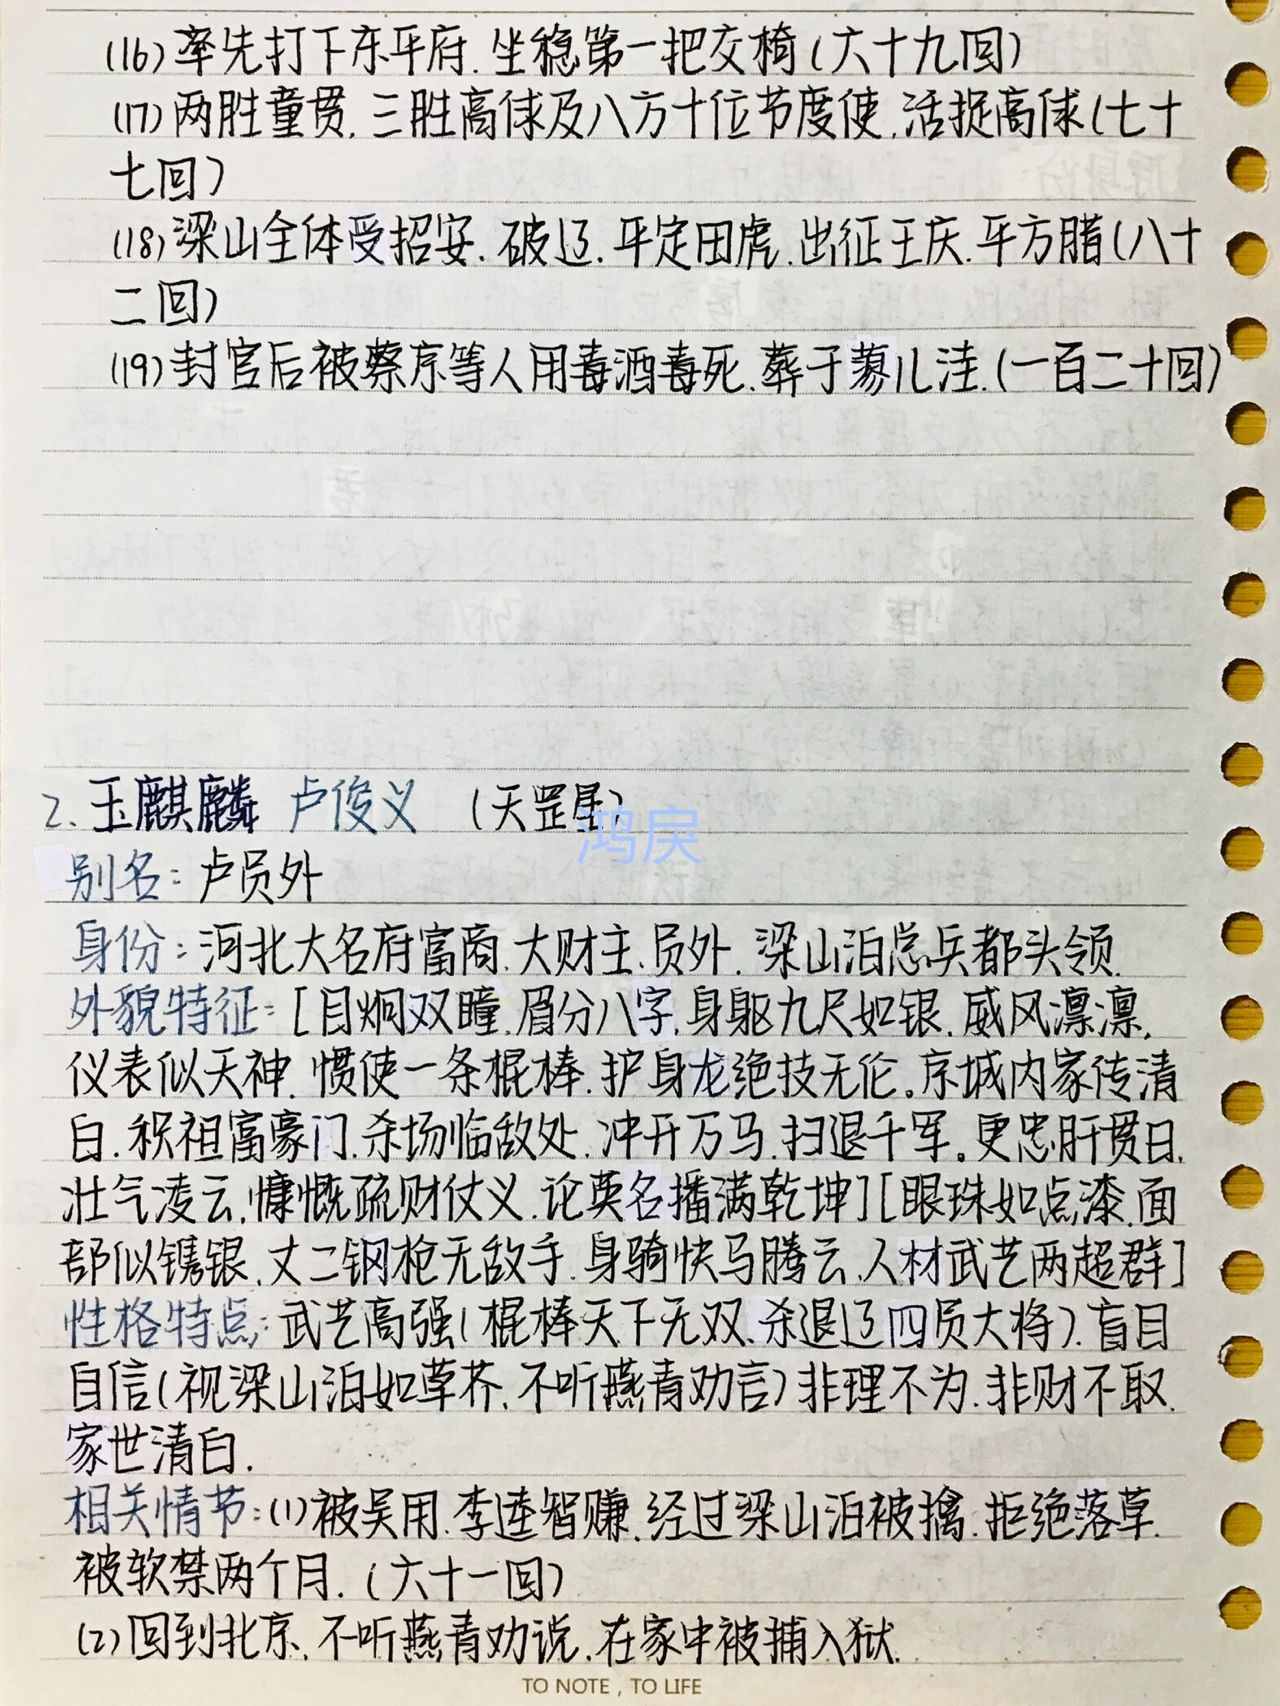 (16)率先打下东平府.坐稳第一把交椅(六十九回)
(17)两胜童贯.三胜高俅及八方十位节度使.活捉高俅(七十
七回)
(18)梁山全体受招安.破辽.平定田虎.出征王庆.平方腊(八十
二回)
(19)封官后被蔡京等人用毒酒毒死.葬于蓼儿洼.(一百二十回)
2.玉麒麟 卢俊义 (天罡星)
鸿戻
别名:卢员外
身份:河北大名府富商.大财主.员外.梁山泊总兵都头领.
外貌特征:[目炯双瞳.眉分八字.身躯九尺如银.威风凛凛,
仪表似天神.惯使一条棍棒.护身龙绝技无伦。京城内家传清
白.积祖富豪门.杀场临敌处.冲开万马.扫退千军。更忠肝贯日,
壮气凌云,慷慨疏财仗义.论英名播满乾坤][眼珠如点漆.面
部似镌银.丈二钢枪无敌手.身骑快马腾云.人材武艺两超群]
性格特点:武艺高强(棍棒天下无双.杀退辽四员大将).盲目
自信(视梁山泊如草芥.不听燕青劝言)非理不为.非财不取.
家世清白.
相关情节:(1)被吴用.李逵智赚.经过梁山泊被擒.拒绝落草.
被软禁两个月.(六十一回)
(2)回到北京.不听燕青劝说.在家中被捕入狱.
TO NOTE , TO LIFE